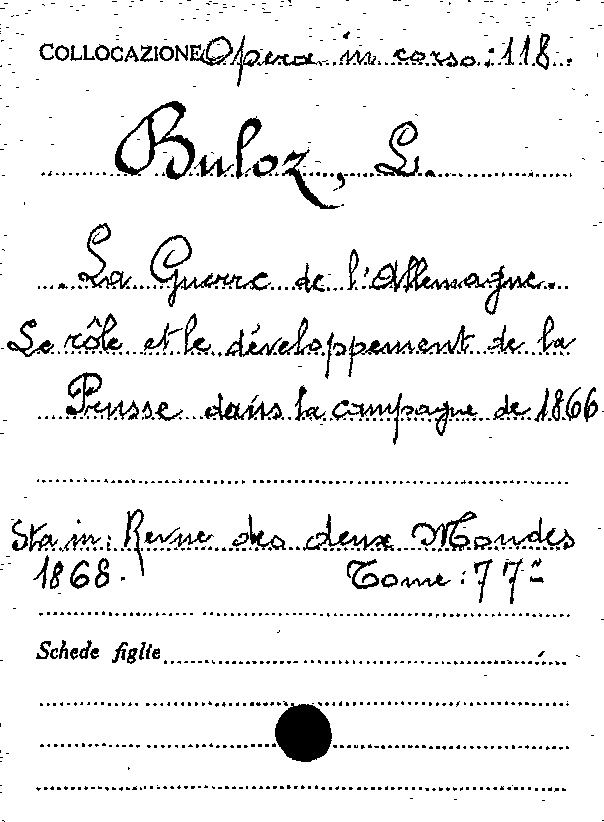 COLLOCAZIONE Opera in corso: 118.
Buloz, L.
La Guerre de l'Allemagne.
Le rôle et le développement de la
Prusse dans la campagne de 1866
Sta in: Revue des deux Mondes
1868. Tome: 77º
Schede figlie